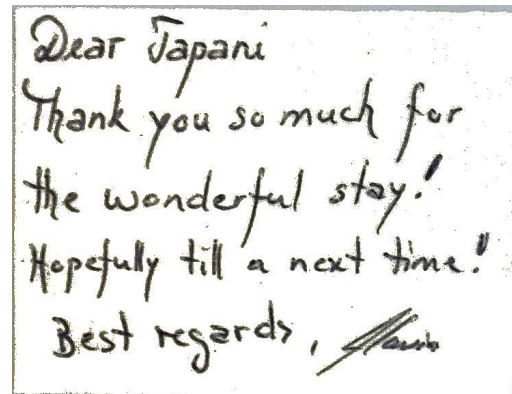 Dear Tapani
Thank you so much for
the wonderful stay!
Hopefully till a next time!
Best regards,